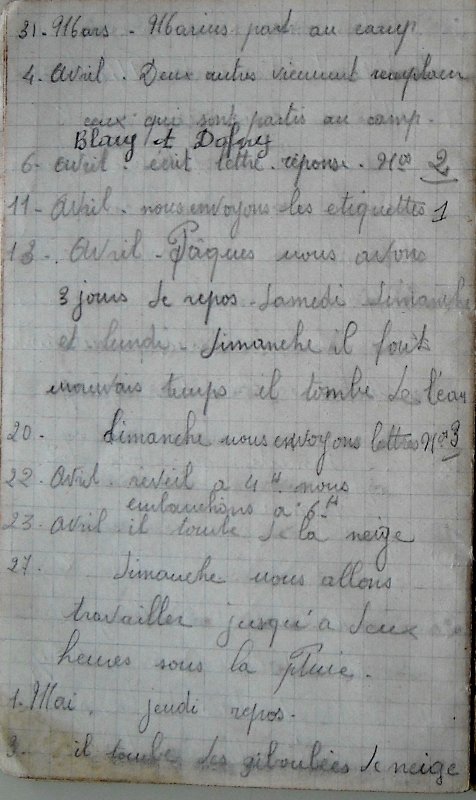 31. Mars. Marius part au camp
4. Avril. Deux autres viennent remplacer
ceux qui sont partis au camp.
Blavy et Dofny
6. avril. ecrit lettre réponse. Nos 2
11. Avril. nous envoyons les etiquettes 1
13. Avril. Pâques nous avons
3 jours de repos. Samedi dimanche
et lundi. dimanche il fait
mauvais temps il tombe de l'eau
20. dimanche nous envoyons lettres Nos 3
22. Avril. reveil a 4 H nous
embauchons a 6 H
23. avril il tombe de la neige
27. dimanche nous allons
travailler jusqu'a deux
heures sous la Pluie.
1. Mai. jeudi repos.
3. il tombe des giboulées de neige